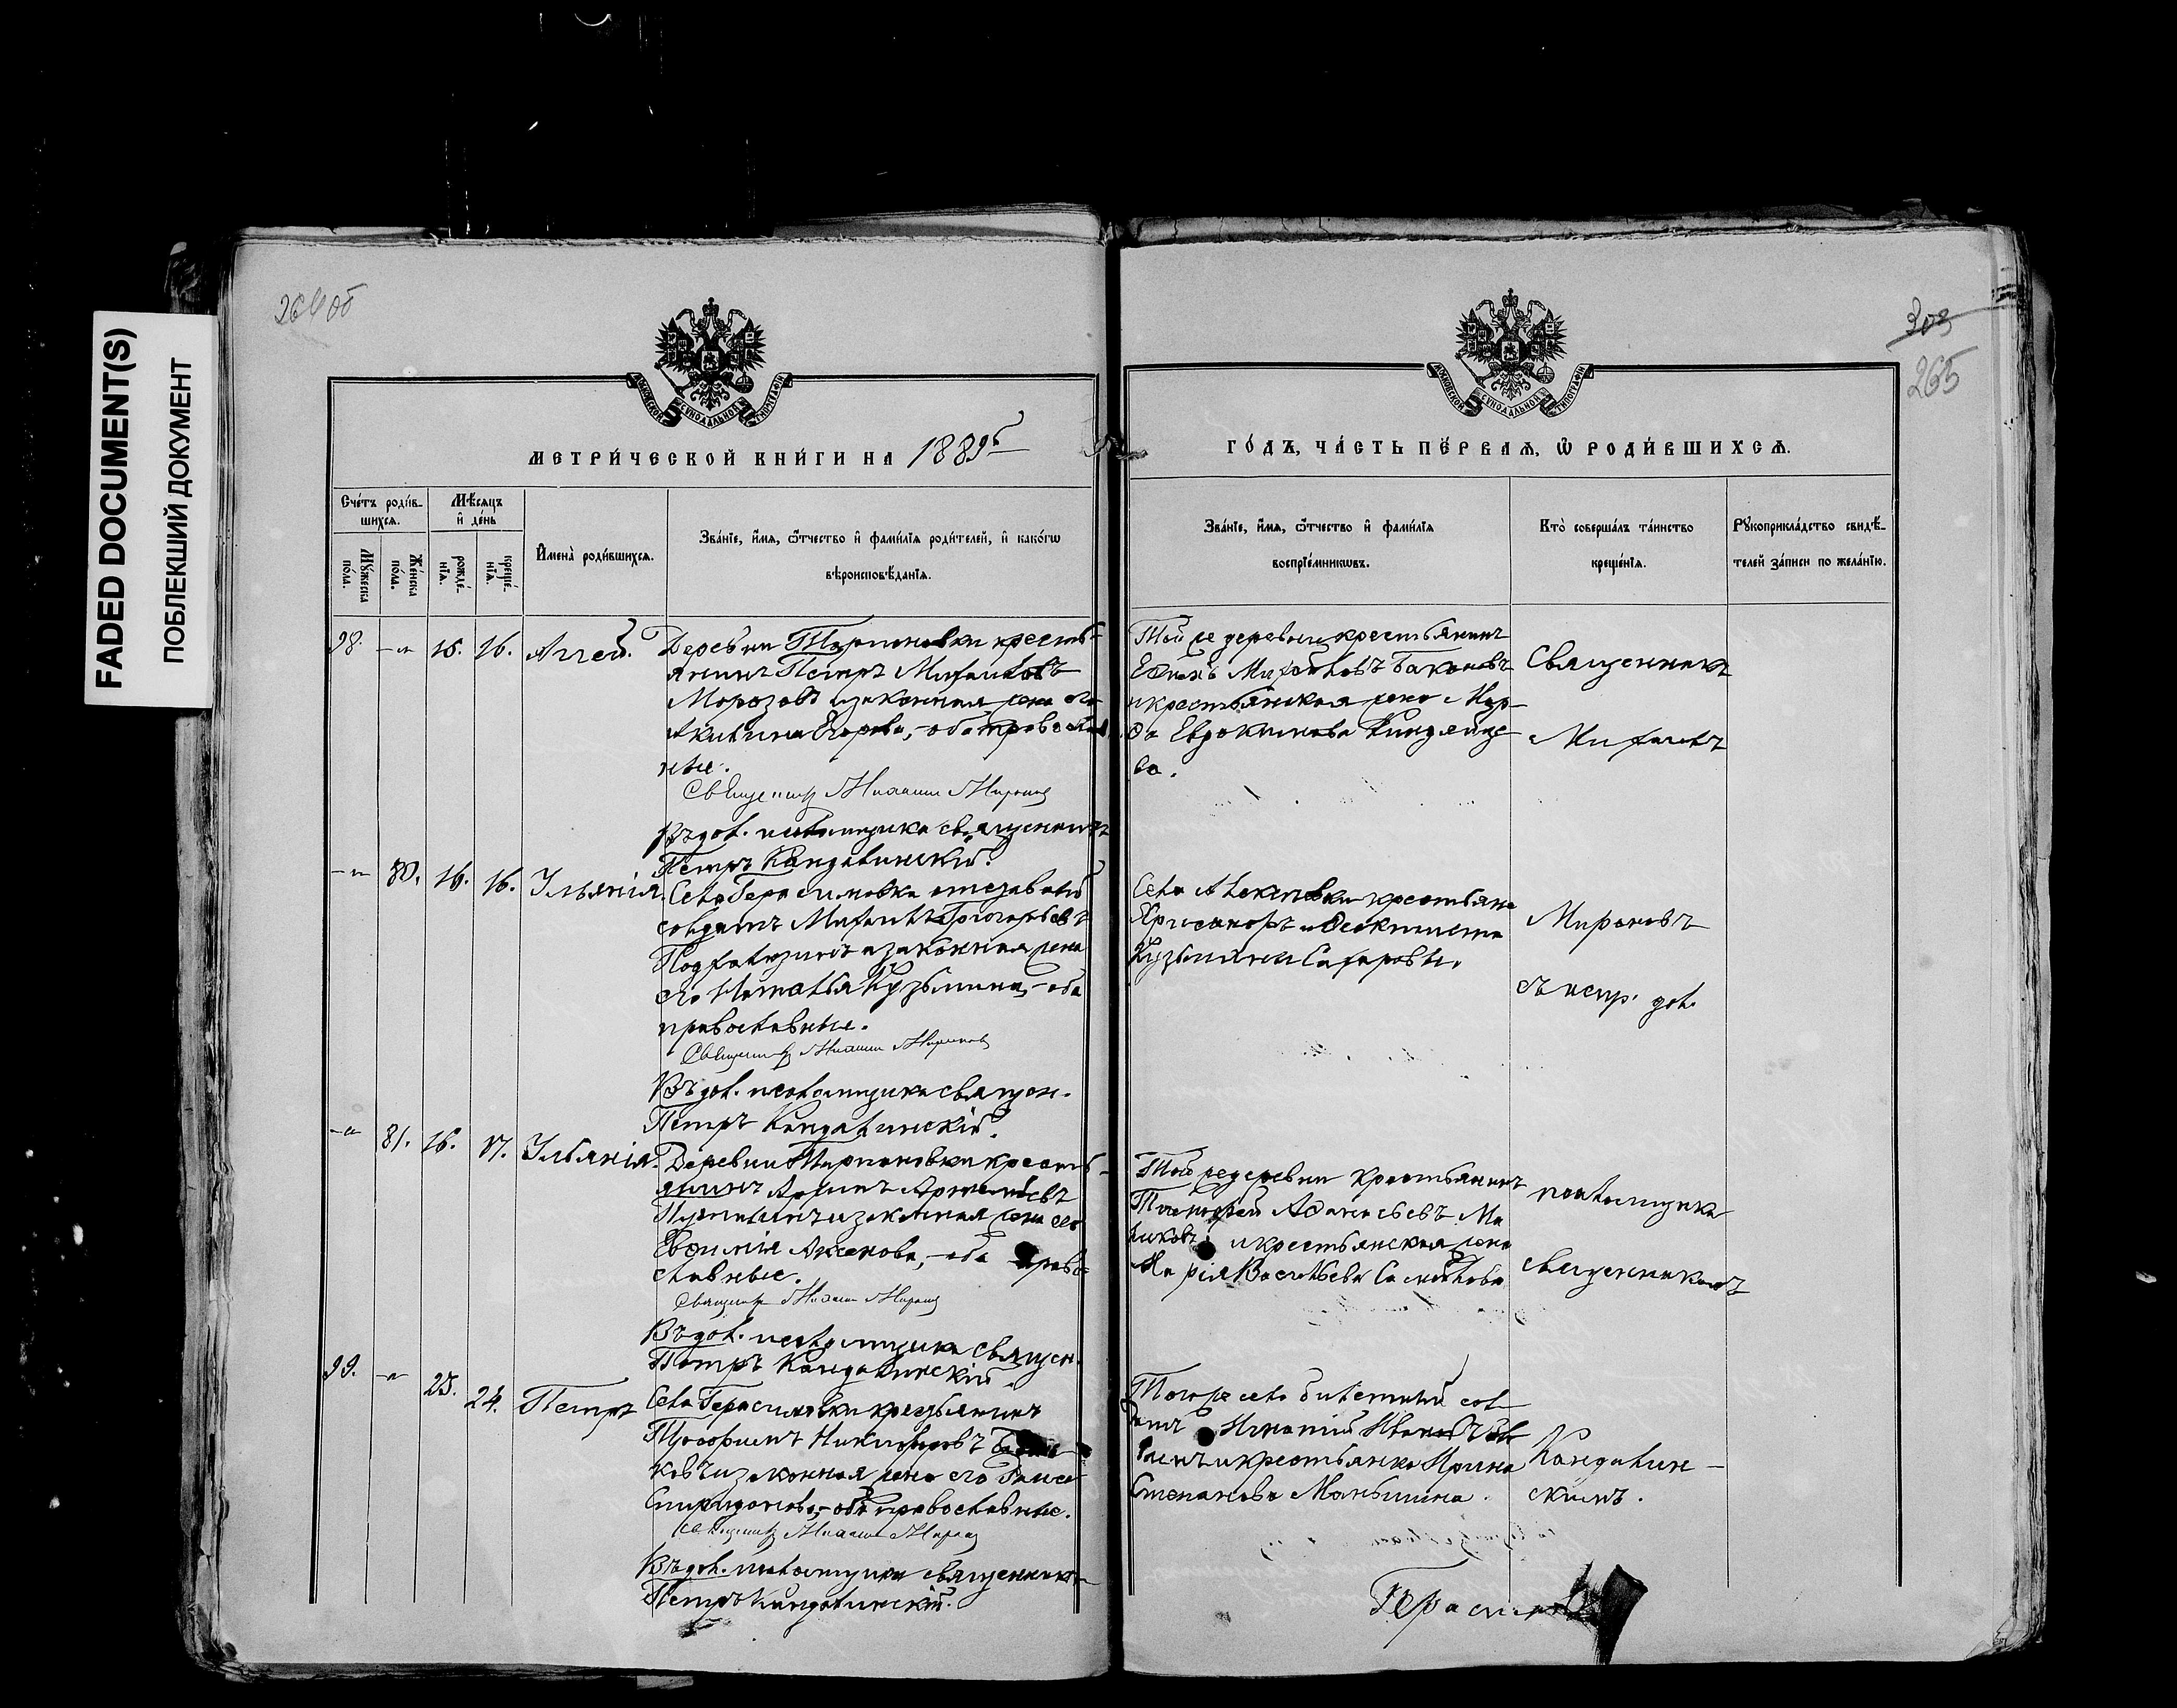 FADED DOCUMENT(S)
ПОБЛЕКШИЙ ДОКУМЕНТ
264об
303
265
МОСКОВСКОЙ СѴНОДАЛЬНОЙ ТИПОГРАФІИ
МОСКОВСКОЙ СѴНОДАЛЬНОЙ ТИПОГРАФІИ
МЕТРИ́ЧЕСКОЙ КНИ́ГИ НА 1889
ГО́ДЪ, ЧА́СТЬ ПЕ́РВАѦ, Ѿ РОДИ́ВШИХСѦ.
Сче́тъ роди́в-
шихся.
Мѣсяцъ
и҆ де́нь
Мꙋ́жеска
по́ла.
Же́нска
по́ла.
рожде́-
нїѧ.
креще́-
нїѧ.
И҆мена̀ роди́вшихсѧ.
Зва́нїе, и҆́мѧ, ѻ҆́тчество и҆ фами́лїѧ роди́телей, и҆ како́гѡ
вѣроисповѣ́данїѧ.
Зва́нїе, и҆́мѧ, ѻ҆́тчество и҆ фами́лїѧ
воспрїе́мникѡвъ.
Кто̀ соверша́лъ та́инство
креще́нїѧ.
Рꙋкоприкла́дство свидѣ́-
телей за́писи по жела́нїю.
98. 15. 16. Аггей.
Деревни Тарпановки кресть-
янинъ Петръ Михайловъ
Морозовъ и законная жена его
Акилина Егорова, - оба православ-
ные.
Священникъ Миронов
Въ дол. псаломщика священникъ
Петръ Кандалинскій.
Той же деревни крестьянинъ
Ефимъ Михайловъ
и крестьянская жена Мар-
фа Евдокимова
ва.
Священникъ
Михаилъ
80. 16. 16. Ульянія.
Села Герасимовки отставной
солдатъ Михаилъ Григорьевъ
Подхалюзинъ и законная жена
его Наталья Кузьмина, - оба
православные.
Священникъ Миронов
Въ дол. псаломщика священ.
Петръ Кандалинскій.
Села Алексѣевки крестьяне
Хрисанфъ и Феоктиста
Кузьмины Сахаровы.
Мироновъ
съ испр. дол.
81. 16. 17. Ульянія.
Деревни Тарпановки кресть-
янинъ Артемьевъ
и законная жена его
Евфимія Аксенова, - оба право-
славные.
Священникъ Миронов
Въ дол. псаломщика священ.
Петръ Кандалинскій.
Той же деревни крестьянинъ
Тимофей
и крестьянская жена
Марія Васильева Самойлова
псаломщика
священникомъ
99. 23. 24. Петръ
Села Герасимовки крестьянинъ
Трофимъ Никифоровъ
ковъ и законная жена его
Спиридонова, - оба православные.
Священникъ Миронов
Въ дол. псаломщика священникъ
Петръ Кандалинскій.
Того же села билетный сол-
датъ Игнатій Ивановъ
и крестьянка Ирина
Степанова Маньшина.
Кандалин-
скимъ.